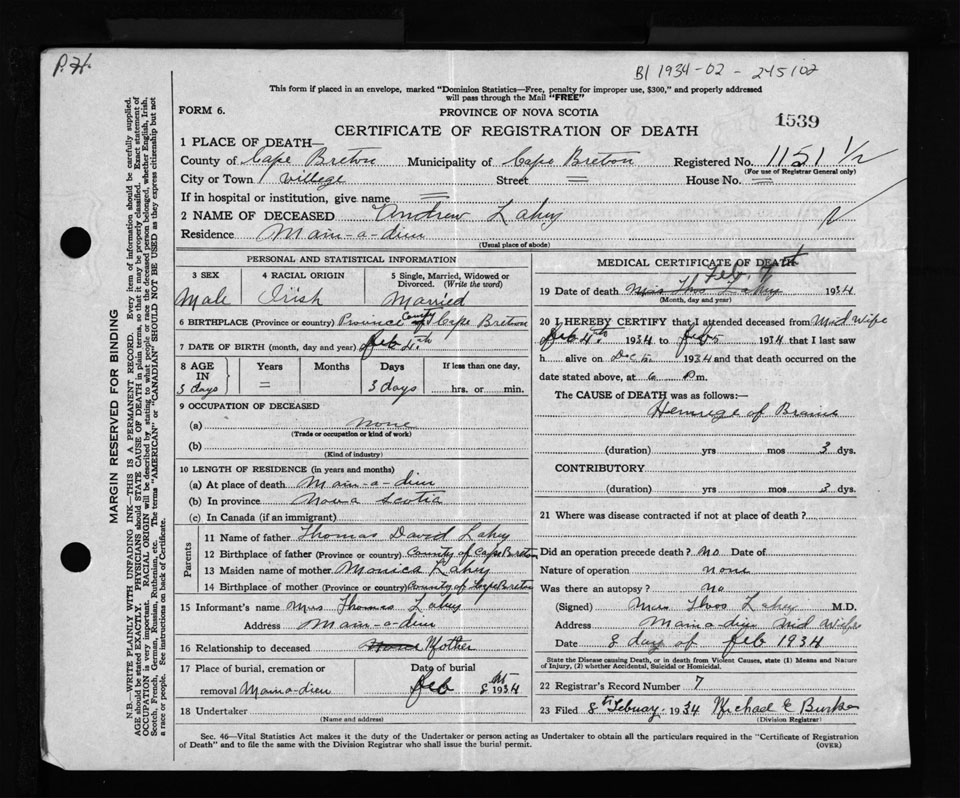 P.H.
B1 1934-02-245102
This form if placed in an envelope, marked "Dominion Statistics—Free, penalty for improper use, $300," and properly addressed
will pass through the Mail "FREE"
FORM 6.
PROVINCE OF NOVA SCOTIA
1539
CERTIFICATE OF REGISTRATION OF DEATH
1 PLACE OF DEATH—
County of Cape Breton Municipality of Cape Breton Registered No. 1151 1/2
(For use of Registrar General only)
City or Town Villege Street = House No. =
If in hospital or institution, give name =
2 NAME OF DECEASED Andrew Lahey
Residence Main-a-dieu
(Usual place of abode)
PERSONAL AND STATISTICAL INFORMATION
3 SEX 4 RACIAL ORIGIN 5 Single, Married, Widowed or Divorced. (Write the word)
Male Irish Married
6 BIRTHPLACE (Province or country) Province County of Cape Breton
7 DATE OF BIRTH (month, day and year) Feb 4th
8 AGE IN Years Months Days If less than one day.
3 days = 3 days hrs. or min.
9 OCCUPATION OF DECEASED
(a) none
(Trade or occupation or kind of work)
(b)
(Kind of industry)
10 LENGTH OF RESIDENCE (in years and months)
(a) At place of death Main-a-dieu
(b) In province Nova Scotia
(c) In Canada (if an immigrant)
Parents
11 Name of father Thomas David Lahey
12 Birthplace of father (Province or country) County of Cape Breton
13 Maiden name of mother Monica Lahey
14 Birthplace of mother (Province or country) County of Cape Breton
15 Informant's name Mrs Thomas Lahey
Address Main-a-dieu
16 Relationship to deceased Mother
17 Place of burial, cremation or Date of burial
removal Mainadieu Feb 8th 1934
18 Undertaker
(Name and address)
MEDICAL CERTIFICATE OF DEATH
Feb. 7th
19 Date of death Miss Thos Lahey 1934
(Month, day and year)
20 I HEREBY CERTIFY that I attended deceased from Mid Wife
Feb 4th 1934 to Feb 1934 that I last saw
h alive on 1934 and that death occurred on the
date stated above, at 6 P m.
The CAUSE of DEATH was as follows:—
Hemrige of Brains
(duration) yrs mos 3 dys.
CONTRIBUTORY
(duration) yrs mos 3 dys.
21 Where was disease contracted if not at place of death?
Did an operation precede death? no Date of
Nature of operation none
Was there an autopsy? no
(Signed) Mrs Thos Lahey M.D.
Address Mainadieu Mid Wife
Date 8 day of Feb 1934
State the Disease causing Death, or in death from Violent Causes, state (1) Means and Nature
of Injury, (2) whether Accidental, Suicidal or Homicidal.
22 Registrar's Record Number 7
23 Filed 8th Febuary. 1934 Michael E Burke
(Division Registrar)
Sec. 46—Vital Statistics Act makes it the duty of the Undertaker or person acting as Undertaker to obtain all the particulars required in the "Certificate of Registration
of Death" and to file the same with the Division Registrar who shall issue the burial permit.
(OVER)
MARGIN RESERVED FOR BINDING
N.B.—WRITE PLAINLY WITH UNFADING INK—THIS IS A PERMANENT RECORD. Every item of information should be carefully supplied.
AGE should be stated EXACTLY. PHYSICIANS should STATE CAUSE OF DEATH in plain terms, so that it may be properly classified. Exact statement of
OCCUPATION is very important. RACIAL ORIGIN will be described by stating to what people or race the deceased person belonged, whether English, Irish,
Scotch, French, German, Russian, Ruthenian, etc. The terms "AMERICAN" or "CANADIAN" SHOULD NOT BE USED as they express citizenship but not
a race or people. See instructions on back of Certificate.